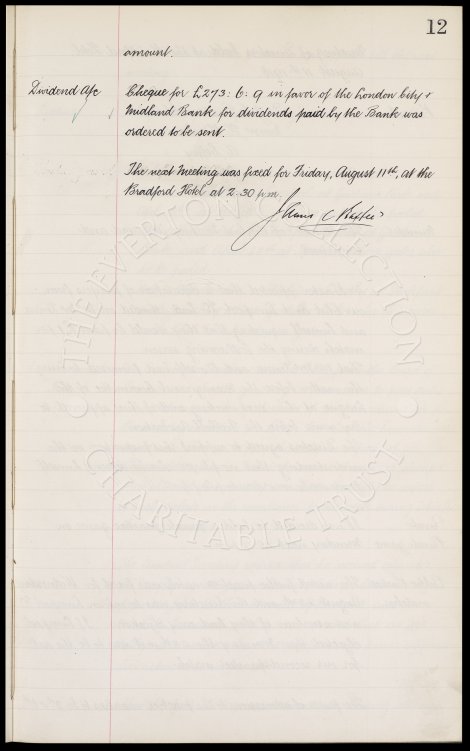 12
amount.
Dividend A/c
Cheque for £273: 6: 9 in favor of the London City &
Midland Bank for dividends paid by the Bank was
ordered to be sent.
The next Meeting was fixed for Friday, August 11th, at the
Bradford Hotel at 2.30 p.m.
James C Baxter
THE EVERTON COLLECTION
CHARITABLE TRUST